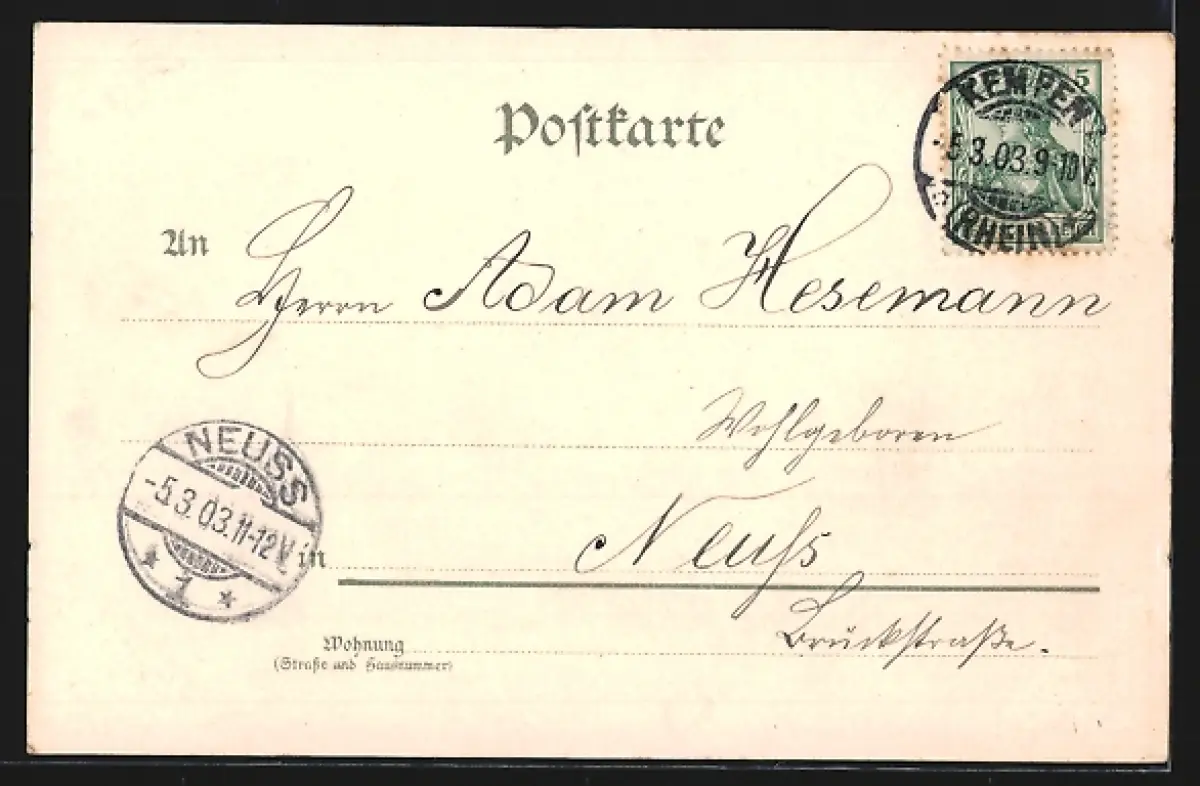 Postkarte
KEMPEN
5
-5.3.03.9-10V.
(RHEIN)
An Herrn Adam Hesemann
Wohlgeboren
NEUSS
-5.3.03.11-12V.
* 1 *
in Neuss
Brückstraße.
Wohnung
(Straße und Hausnummer)